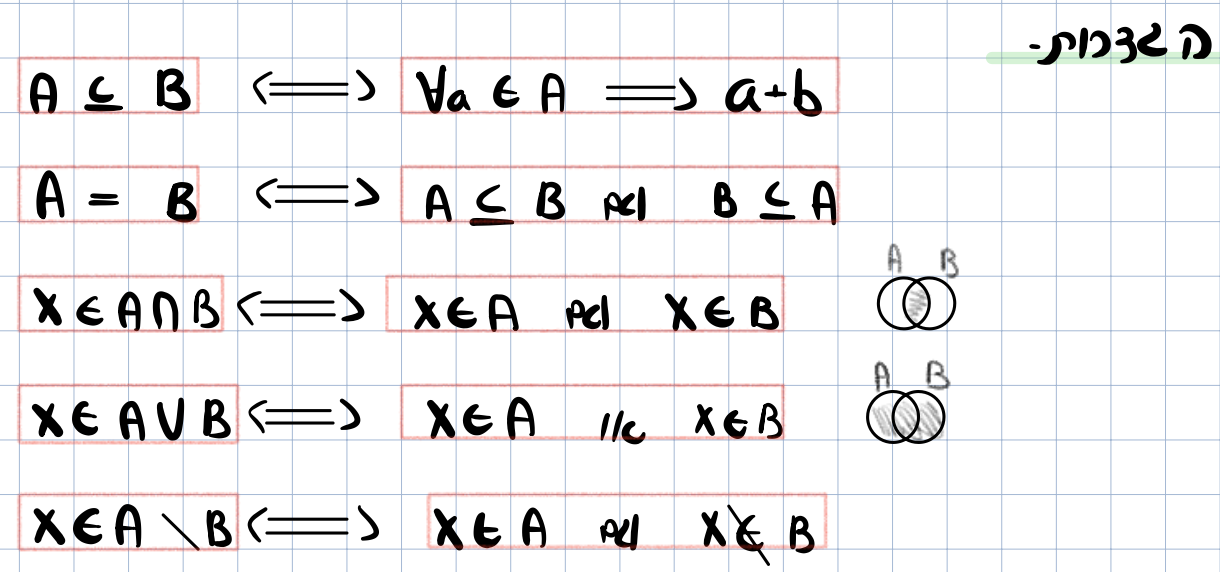 הגדרות-
A ⊆ B ⟺ ∀a ∈ A ⟹ a+b
A = B ⟺ A ⊆ B וגם B ⊆ A
A B
X ∈ A ∩ B ⟺ X ∈ A וגם X ∈ B
A B
X ∈ A ∪ B ⟺ X ∈ A או X ∈ B
X ∈ A \ B ⟺ X ∈ A וגם X ∉ B